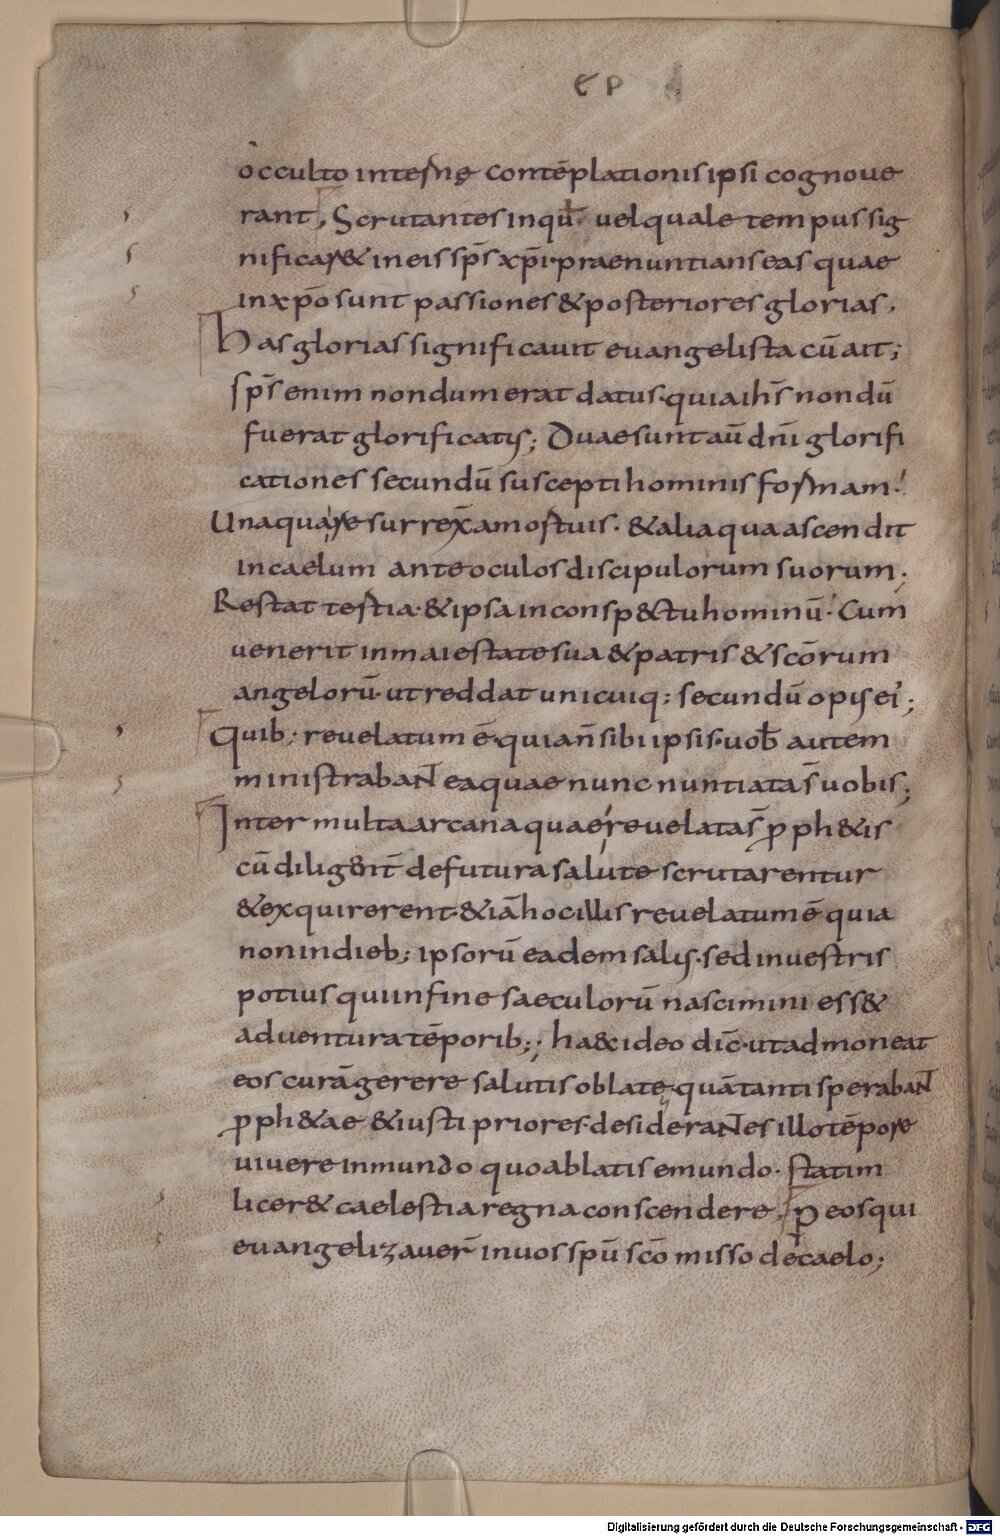 EP
occulto internę contēplationis ipsi cognoue
rant, Scrutantes in quƚ uel quale tempus sig
nificar& in eis sp̄s xp̄i praenuntians eas quae
in xp̄o sunt passiones & posteriores glorias.
Has glorias significauit euangelista cū ait;
sp̄s enim nondum erat datus. quia ih̄s nondū
fuerat glorificatus; Duae sunt aū dn̄i glorifi
cationes secundū suscepti hominis formam.
Una qua resurrex̄ a mortuis. & alia qua ascendit
in caelum ante oculos discipulorum suorum;
Restat tertia. & ipsa in consp&tu hominū. Cum
uenerit in maiestate sua & patris & sc̄orum
angelorū. ut reddat unicuiq; secundū opus ei';
Quib; reuelatum ē. quia n̄ sibi ipsis. uob̄ autem
ministrabant ea quae nunc nuntiata s̄ uobis;
Inter multa arcana quae reuelata s̄ ꝓph&is
cū diligent̄ de futura salute scrutarentur
& exquirerent. & iā hoc illis reuelatum ē quia
non in dieb; ipsorū eadem salus. sed in uestris
potius qui in fine saeculorū nascimini ess&
aduentura tēporib;; haec ideo dic̄. ut admoneat
eos curā gerere salutis oblatę. quā tanti sperabant
ꝓph&ae & iusti priores. desiderantes illo tēpore
uiuere in mundo quo ablatis e mundo. statim
licer& caelestia regna conscendere, P̱ eos qui
euangelizauer̄ in uos sp̄u sc̄o misso de caelo;
Digitalisierung gefördert durch die Deutsche Forschungsgemeinschaft - DFG